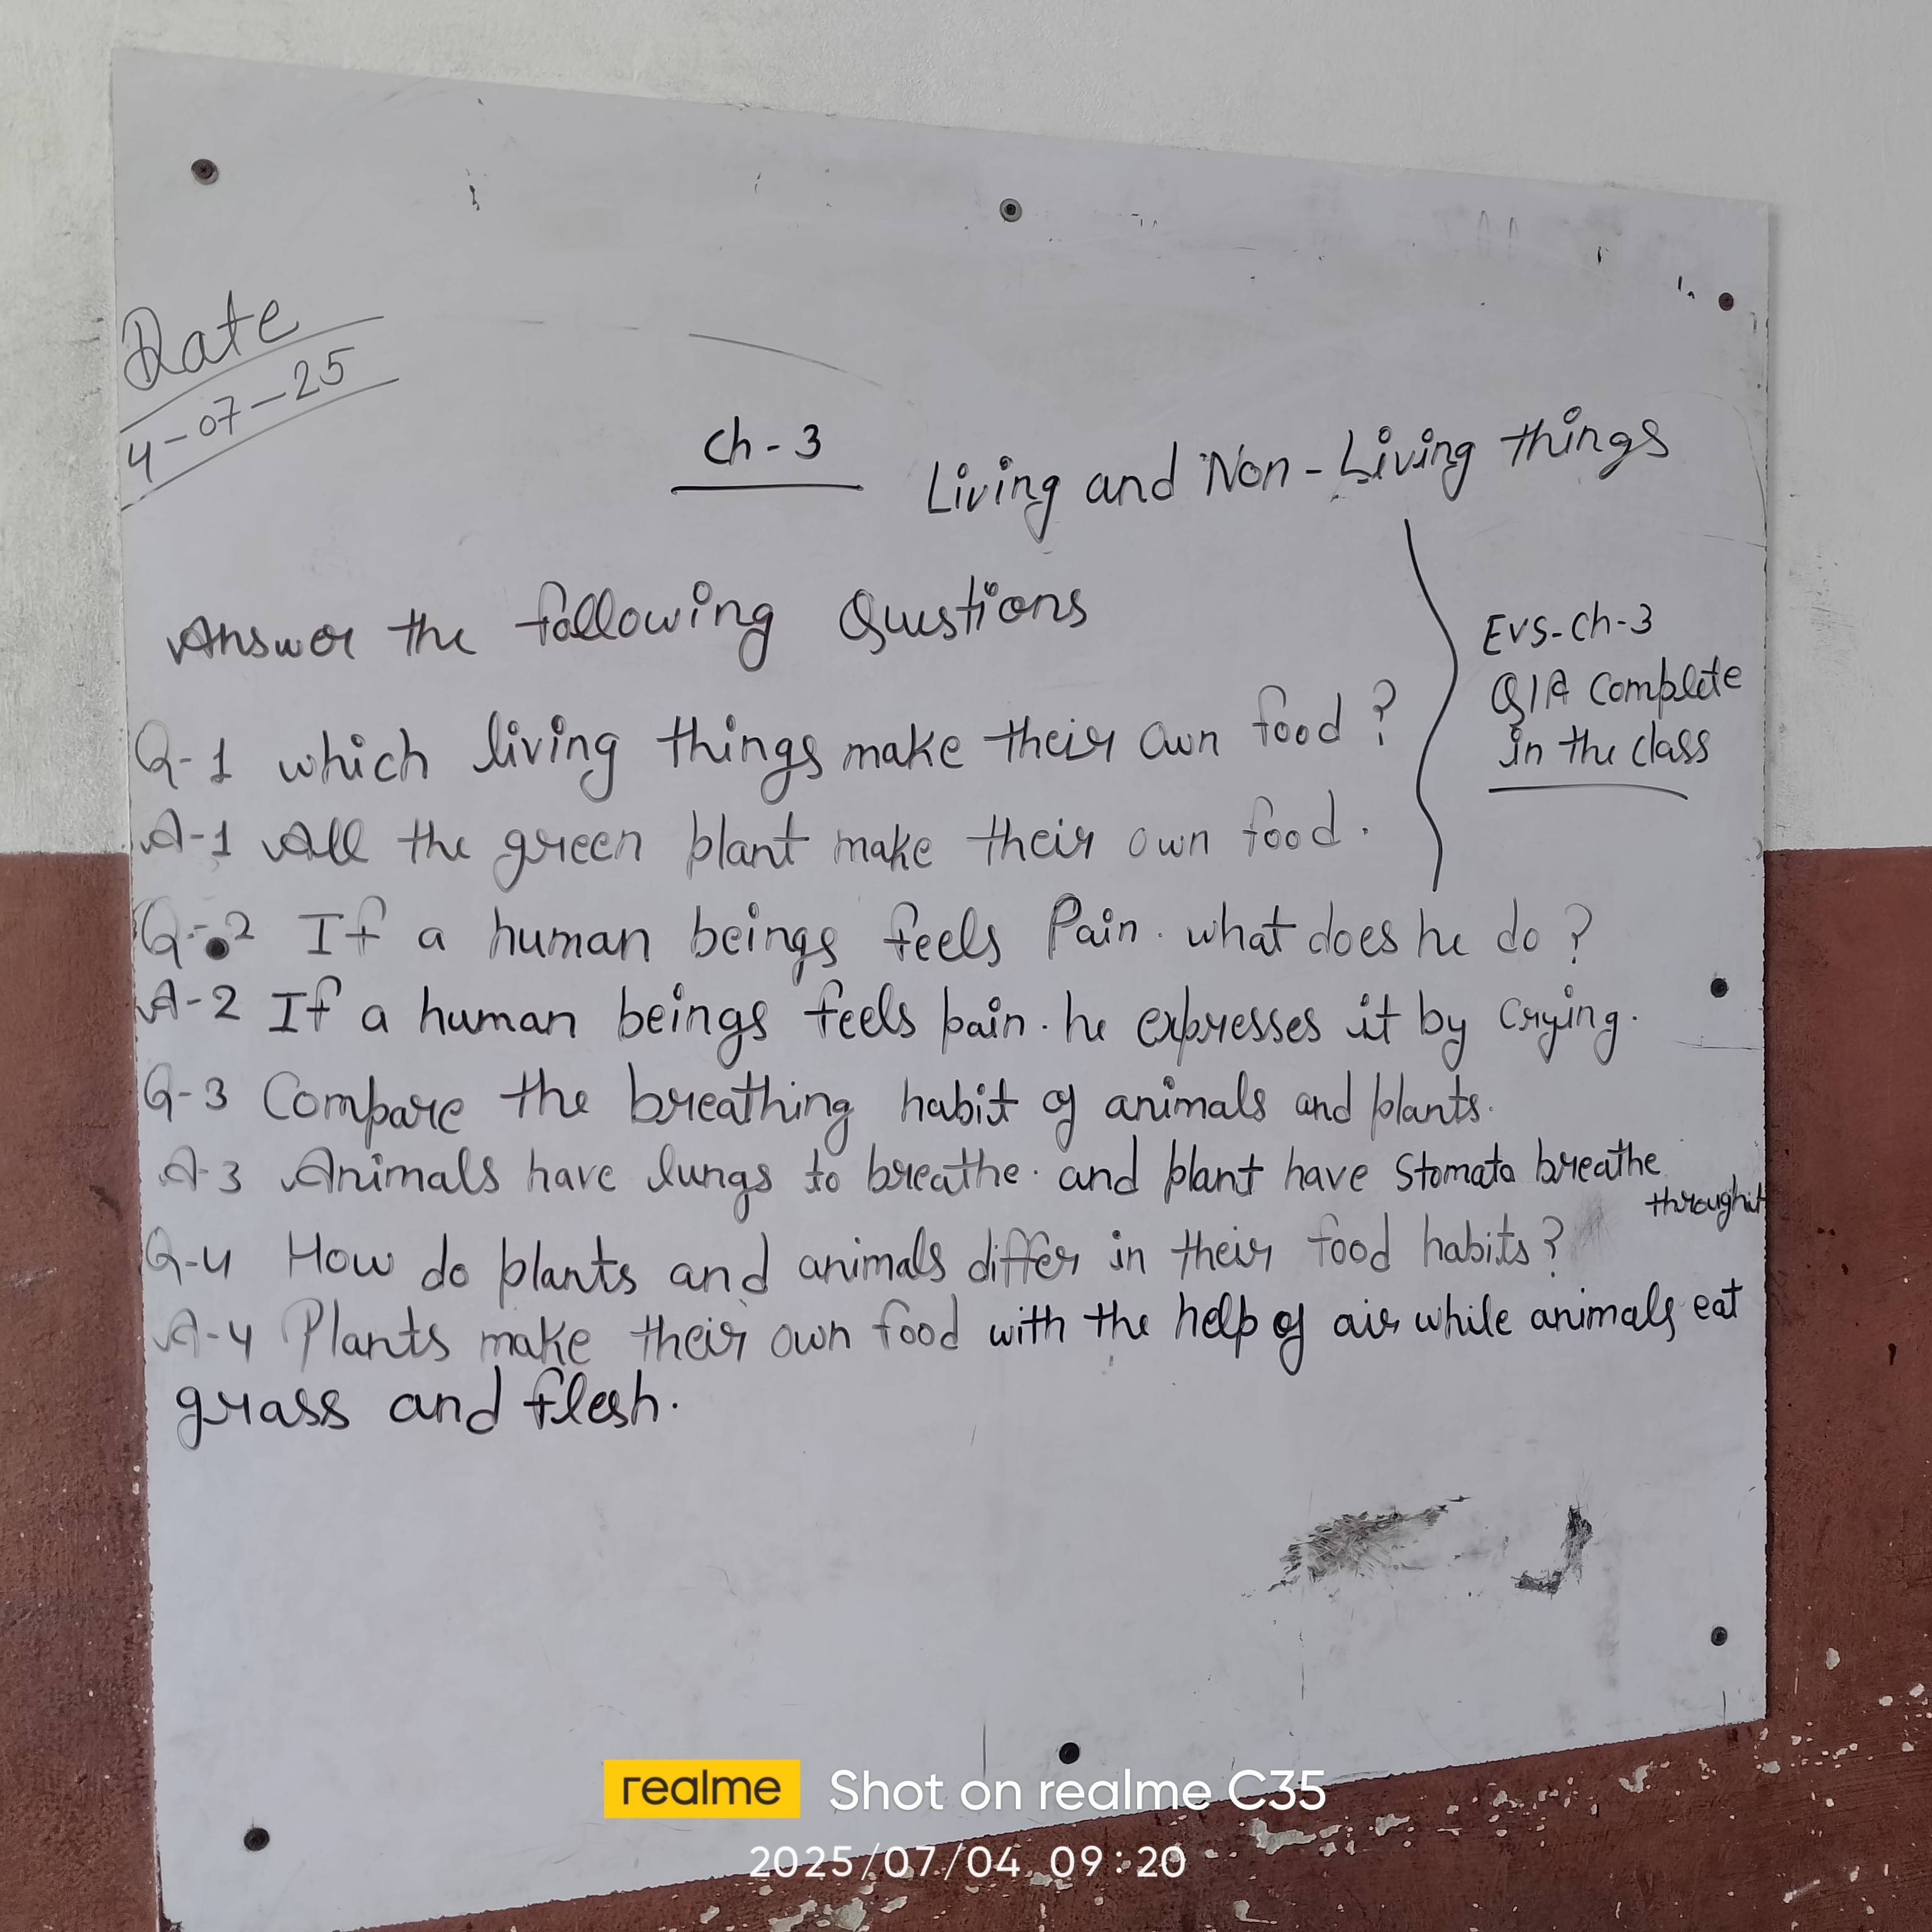 Date
4-07-25
Ch-3 Living and Non-Living things
Answer the following Questions
EVS-Ch-3
Q/A Complete
in the class
Q-1 which living things make their own food?
A-1 All the green plant make their own food.
Q-2 If a human beings feels Pain. what does he do?
A-2 If a human beings feels pain. he expresses it by crying.
Q-3 Compare the breathing habit of animals and plants.
A-3 Animals have lungs to breathe. and plant have Stomata breathe
through it
Q-4 How do plants and animals differ in their food habits?
A-4 Plants make their own food with the help of air while animals eat
grass and flesh.
realme Shot on realme C35
2025/07/04 09:20